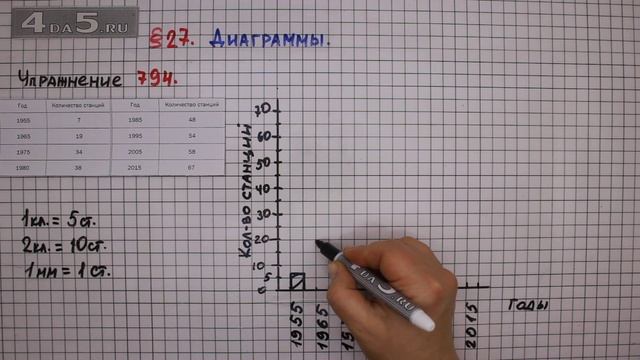 4DA5.RU
§27. Диаграммы.
Упражнение 794.
Год Количество станций Год Количество станций
1955 7 1985 48
1965 19 1995 54
1975 34 2005 58
1980 38 2015 67
1кл. = 5ст.
2кл. = 10ст.
1мм = 1 ст.
Кол-во станций
70
60
50
40
30
20
10
5
0
1955
1965
2015
годы
4DA5.RU